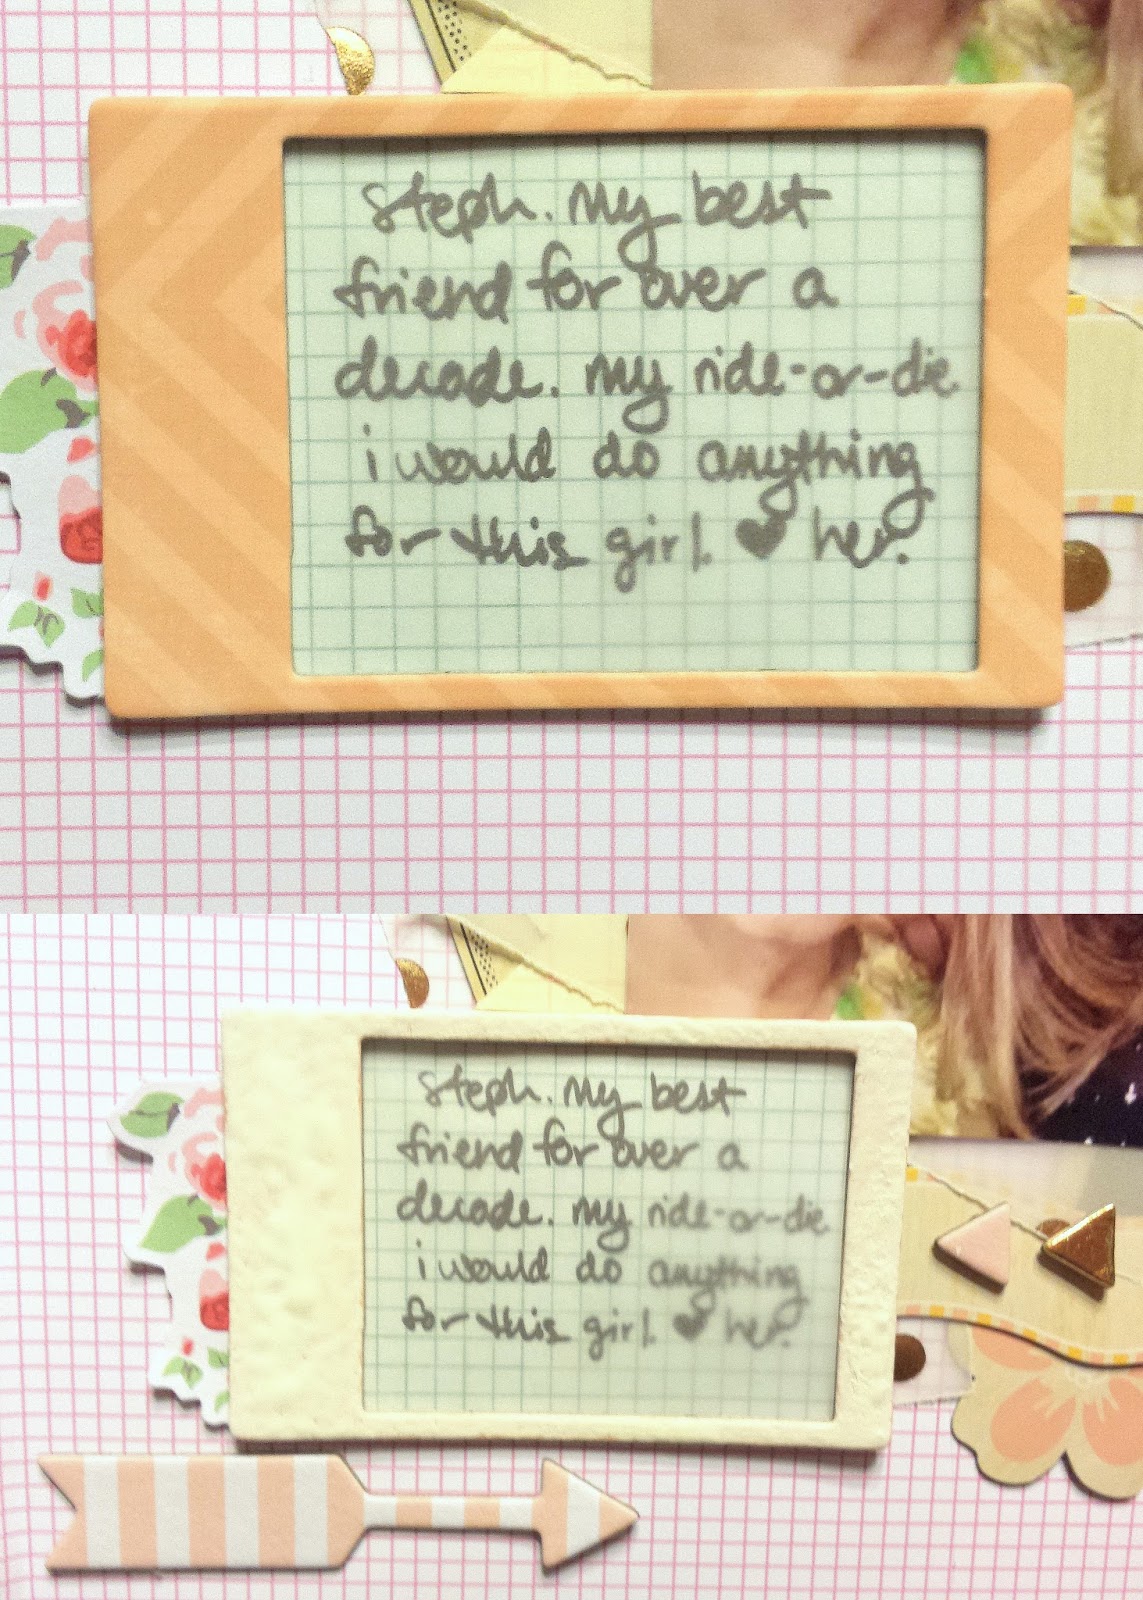 Steph. My best
friend for over a
decade. My ride-or-die
i would do anything
for this girl. ♥ her.
Steph. My best
friend for over a
decade. My ride-or-die
i would do anything
for this girl. ♥ her.